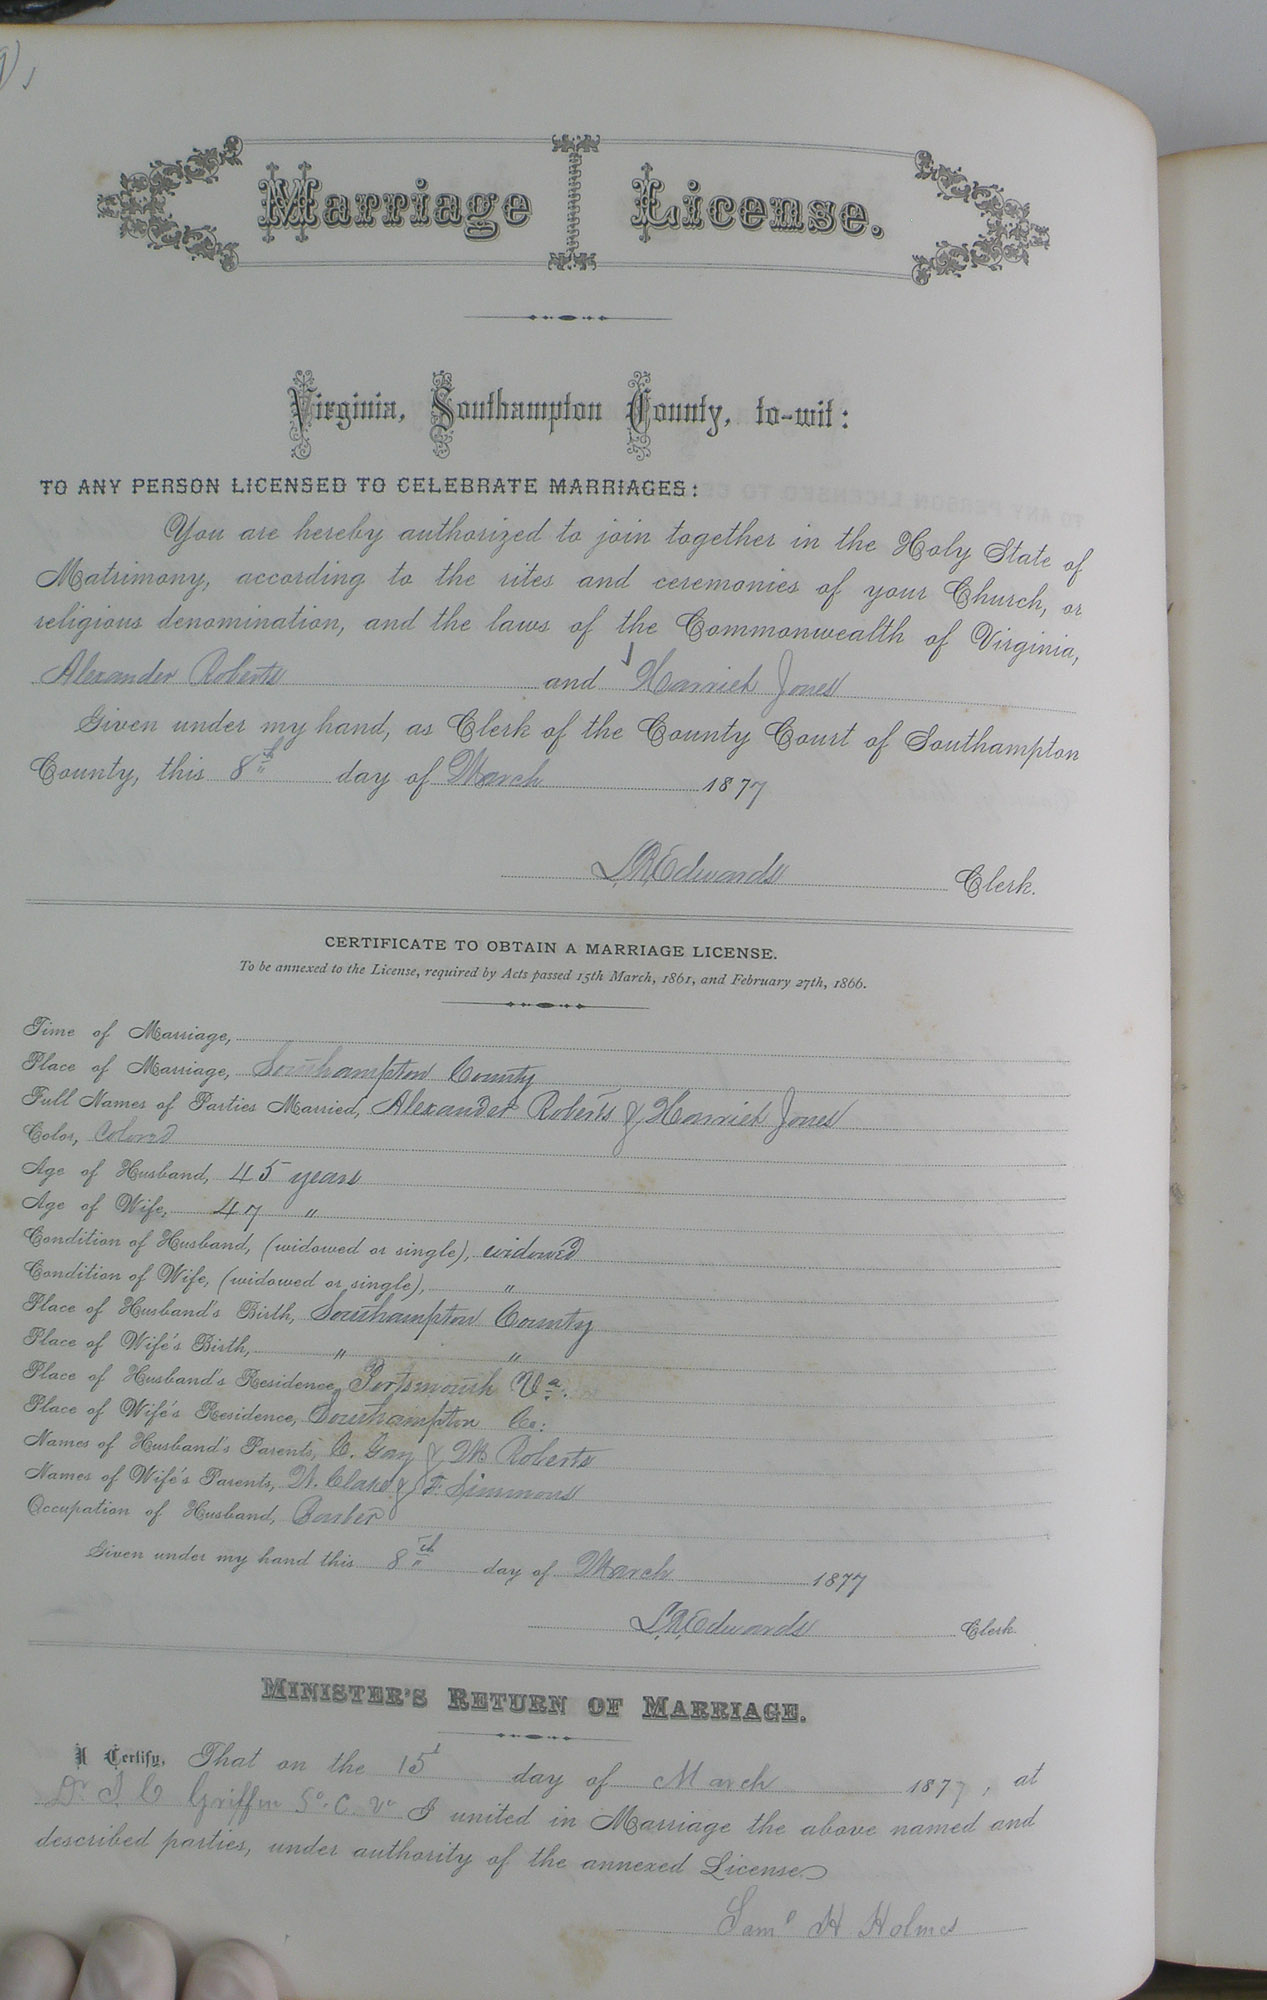 Marriage License.
Virginia, Southampton County, to-wit:
TO ANY PERSON LICENSED TO CELEBRATE MARRIAGES:
You are hereby authorized to join together in the Holy State of
Matrimony, according to the rites and ceremonies of your Church, or
religious denomination, and the laws of the Commonwealth of Virginia,
Alexander Roberts and Harriet Jones
Given under my hand, as Clerk of the County Court of Southampton
County, this 8th day of March 1877
L.R. Edwards Clerk.
CERTIFICATE TO OBTAIN A MARRIAGE LICENSE.
To be annexed to the License, required by Acts passed 15th March, 1861, and February 27th, 1866.
Time of Marriage,
Place of Marriage, Southampton County
Full Names of Parties Married, Alexander Roberts & Harriet Jones
Color, Colored
Age of Husband, 45 years
Age of Wife, 47 "
Condition of Husband, (widowed or single), widowed
Condition of Wife, (widowed or single), "
Place of Husband's Birth, Southampton County
Place of Wife's Birth, " "
Place of Husband's Residence, Portsmouth Va.
Place of Wife's Residence, Southampton Co:
Names of Husband's Parents, C. Gay & M Roberts
Names of Wife's Parents, & F. Simmons
Occupation of Husband,
Given under my hand this 8th day of March 1877
L.R. Edwards Clerk.
MINISTER'S RETURN OF MARRIAGE.
I Certify, That on the 15t day of March 1877, at
Dr. Griffin So. C. Va I united in Marriage the above named and
described parties, under authority of the annexed License.
Saml H Holmes